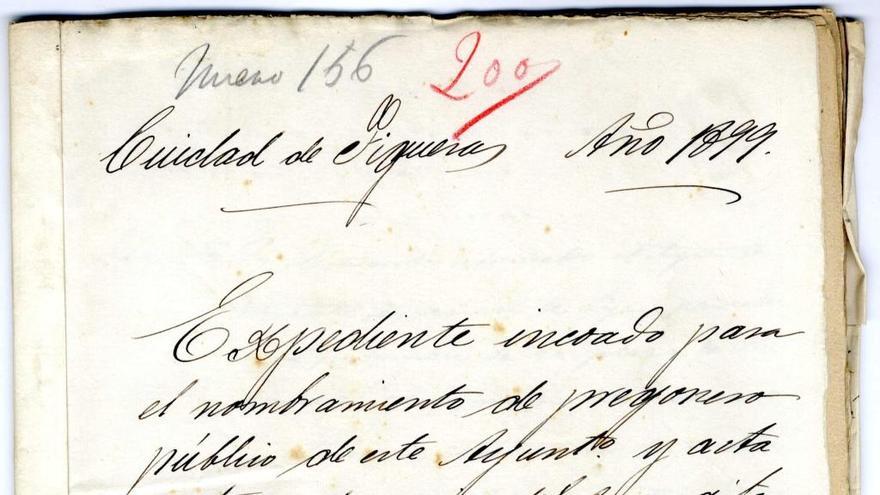 156 200
Ciudad de Figueras Año 1899.
Expediente incoado para
el nombramiento de pregonero
público de este Ayunto. y acta